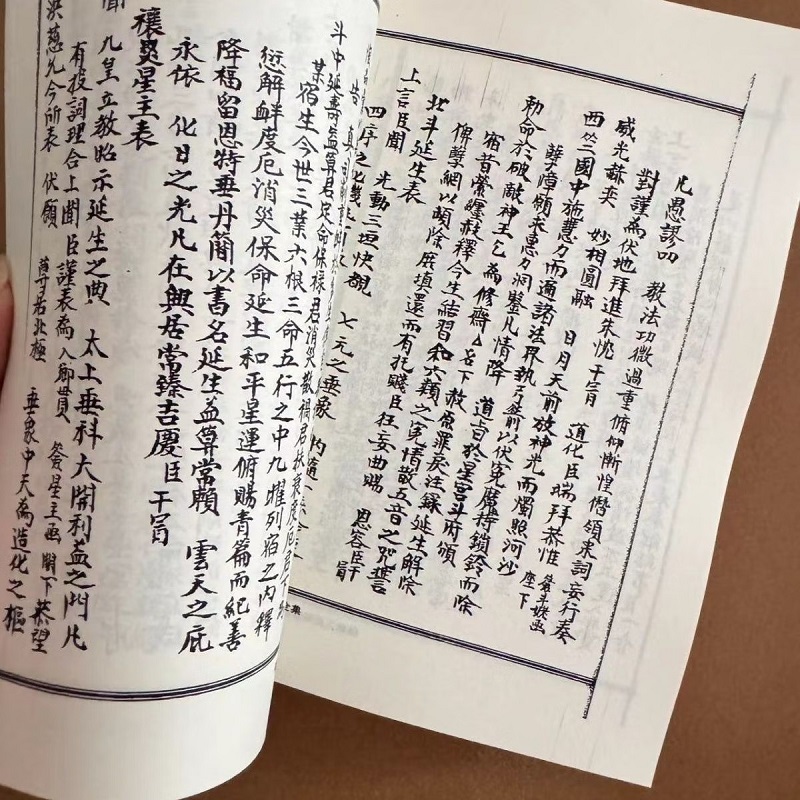 凡愚謬叨 教法功微過重俯仰慚惶僭領來詞妄行奏
對謹為伏地拜進朱忱 干冒 道化臣瑞拜恭惟 座下
威光赫奕 妙相圓融 日月天前放神光而燭照河沙
西竺國中施慧力而遍諸法界執弓箭以伏冤魔持鎖鈴而除
孽障願來惠力洞鑒凡情降 道旨於星宮斗府頒
勅命於破敵神王乞為修齋△名下赦愆罪戾注錄延生解除
宿昔縈纏救釋今生結習和六類之冤情散五音之咒誓
俾孽網以頓除庶填還而有托賤臣狂妄曲賜 恩容臣干冒
北斗延生表
上言臣聞
四序之化 光動三垣快覩 七元之垂象
告 真
斗中延壽益算君定命保祿君消災散禍君扶衰度厄君
某宿生今世三業六根三命五行之中九曜列宿之內釋
愆解衅度厄消災保命延生和平星運俯賜青篇而紀善
降福留恩特垂丹簡以書名延生益算常賴 雲天之庇
永依 化日之光凡在興居常臻吉慶臣干冒
禳熒星主表
聞 九皇立教昭示延生之典 太上垂科大開利益之門凡
有投詞理合上聞臣謹表為入節貫 簽星主函 閣下恭望
洪慈允今所表 伏願 尊居北極 垂象中天為造化之樞
全集